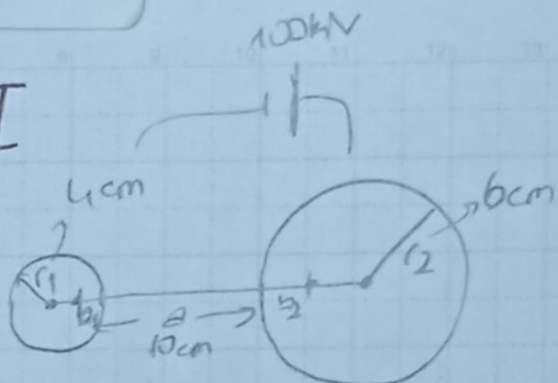 100kV
I
4cm
6cm
r1
r2
b1
b2
a
10cm